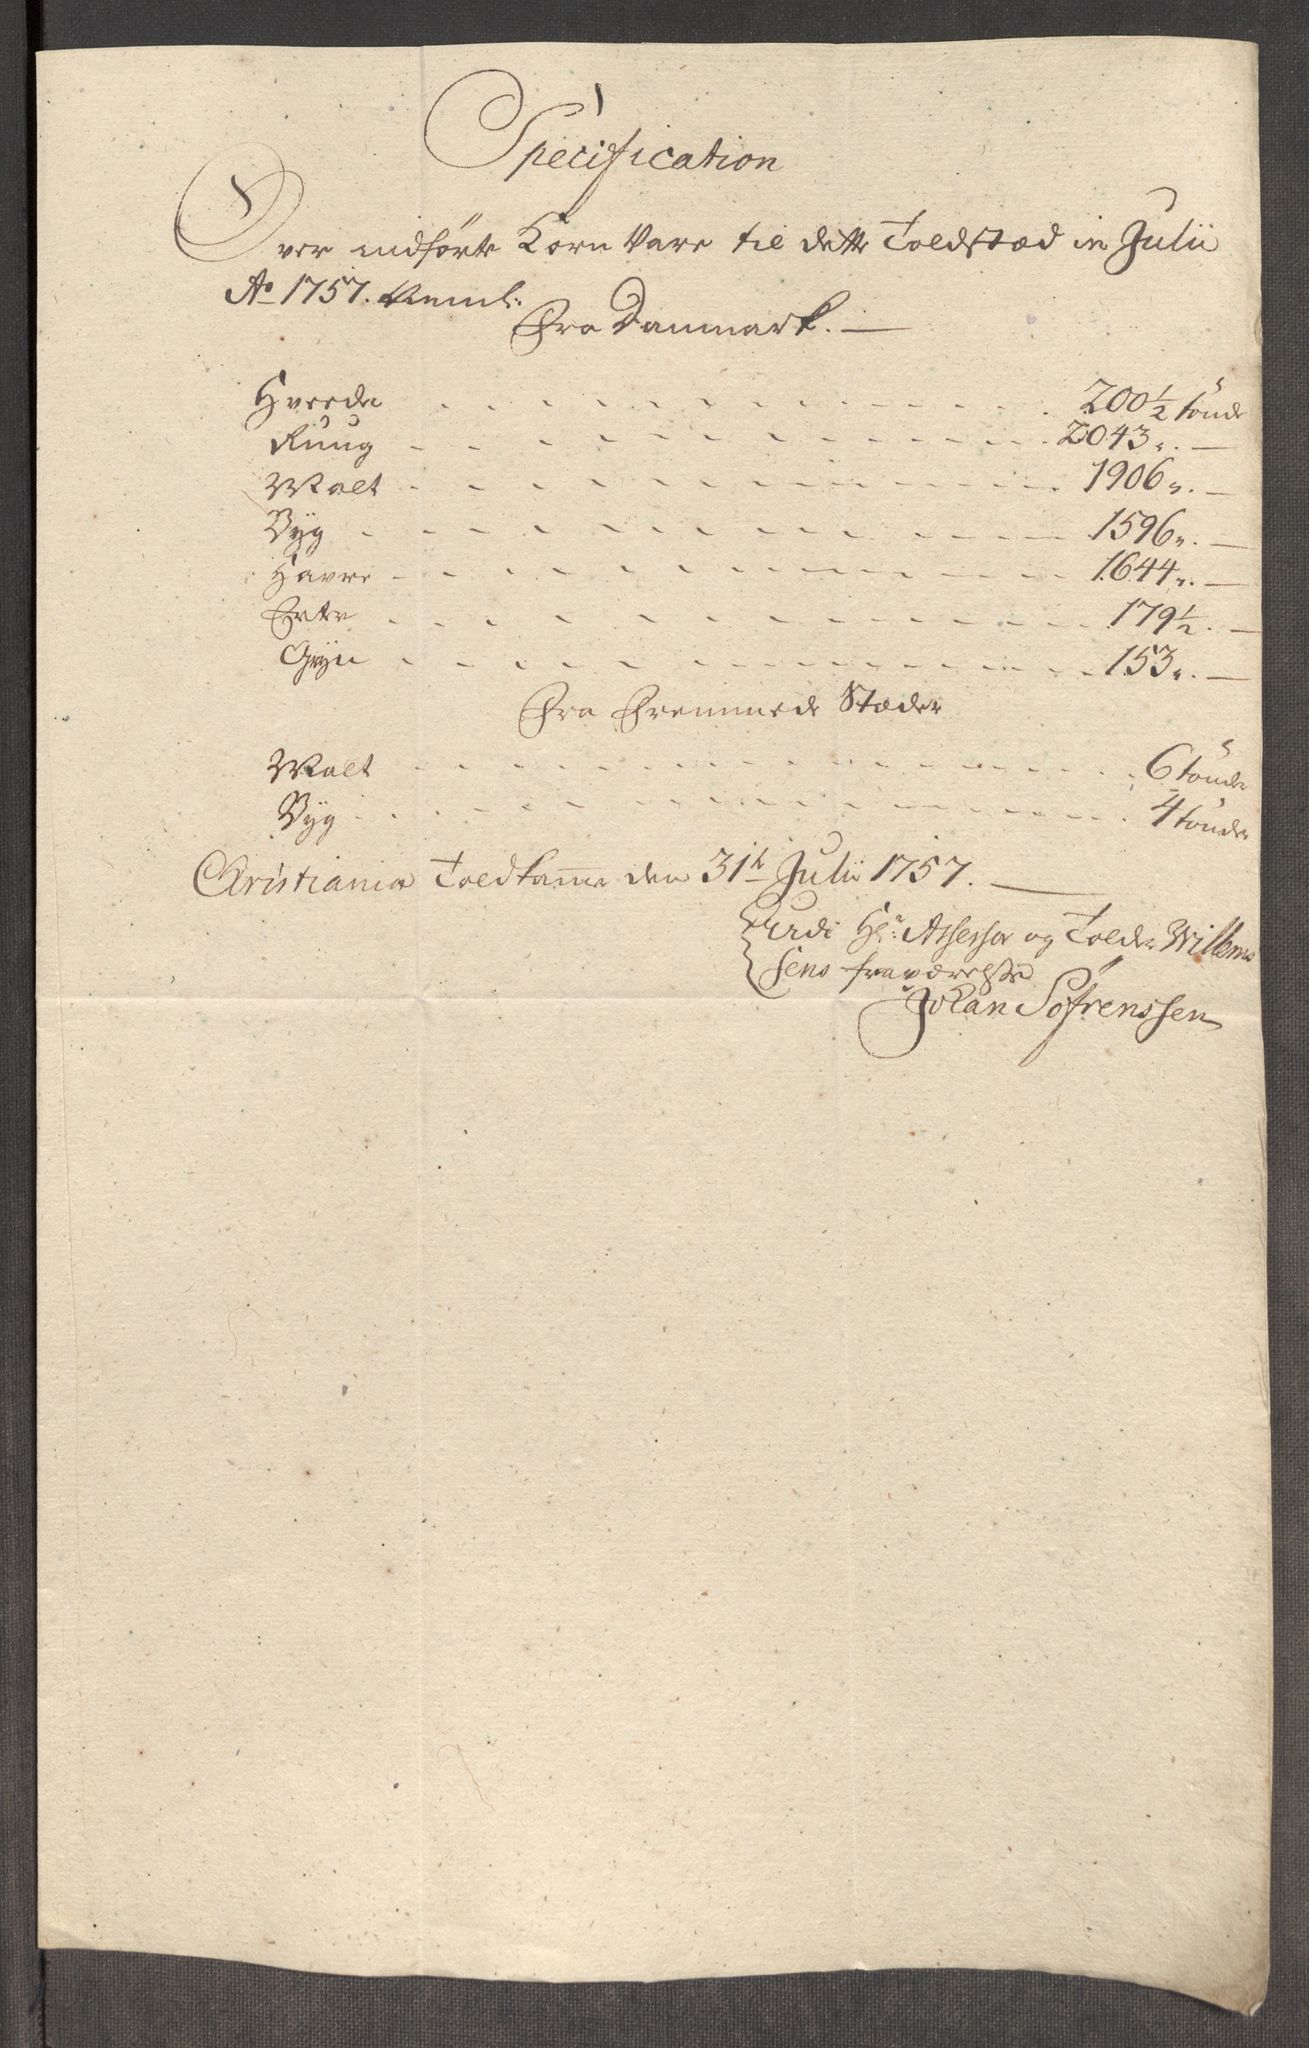 Specification
Over indførte Korn Vare til dette Toldstæd in Julii
Ao 1757. Neml:
Fra Danmark. —
Hveede 200 1/2 tönde
Ruug 2043 „. —
Malt 1906 „. —
Byg 1596 „. —
Havre 1644 „. —
Erter 179 1/2. —
Gryn 153 „. —
Fra Fremmede Stæder
Malt 6 tönder
Byg 4 tönder
Christiania Toldkamer den 31te Julii 1757. —
Udi Hr: Assessor og Tolder Willems
sens fraværelse
Johan Söfrenssen